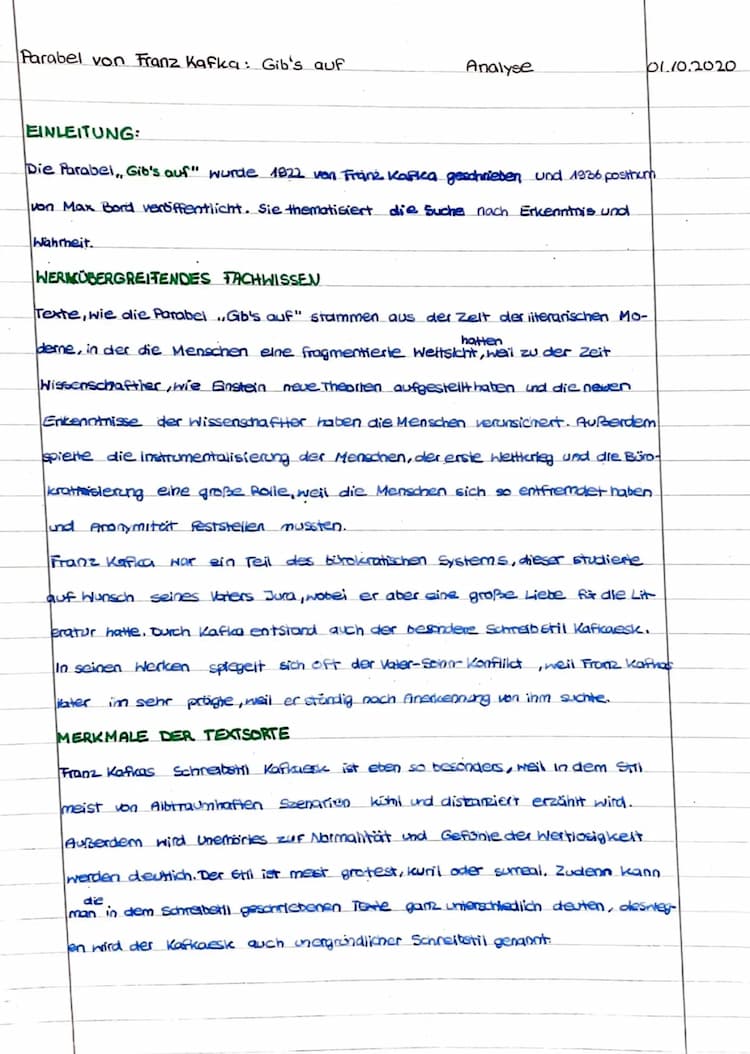 Parabel von Franz Kafka: Gib's auf Analyse 01.10.2020
EINLEITUNG:
Die Parabel „Gib's auf" wurde 1822 von Franz Kafka geschrieben und 1936 posthum
von Max Bord veröffentlicht. Sie thematisiert die Suche nach Erkenntnis und
Wahrheit.
WERKÜBERGREIFENDES FACHWISSEN
Texte, wie die Parabel „Gib's auf" stammen aus der Zeit der literarischen Mo-
derne, in der die Menschen eine fragmentierte Weltsicht hatten, weil zu der Zeit
Wissenschaftler, wie Einstein neue Theorien aufgestellt haben und die neuen
Erkenntnisse der Wissenschaftler haben die Menschen verunsichert. Außerdem
spielte die Instrumentalisierung der Menschen, der erste Weltkrieg und die Büro-
kratisierung eine große Rolle, weil die Menschen sich so entfremdet haben
und Anonymität feststellen mussten.
Franz Kafka war ein Teil des bürokratischen Systems, dieser studierte
auf Wunsch seines Vaters Jura, wobei er aber eine große Liebe für die Lit-
eratur hatte. Durch Kafka entstand auch der besondere Schreibstil Kafkaesk.
In seinen Werken spiegelt sich oft der Vater-Sohn-Konflikt, weil Franz Kafkas
Vater im sehr prägte, weil er ständig nach Anerkennung von ihm suchte.
MERKMALE DER TEXTSORTE
Franz Kafkas Schreibstil Kafkaesk ist eben so besonders, weil in dem Stil
meist von Albtraumhaften Szenarien kühl und distanziert erzählt wird.
Außerdem wird zur Normalität und Gefühle der Wertlosigkeit
werden deutlich. Der Stil ist meist oder surreal. Zudem kann
man die in dem Schreibstil geschriebenen Texte ganz unterschiedlich deuten,
en wird der Kafkaesk auch unergründlicher Schreibstil genannt.